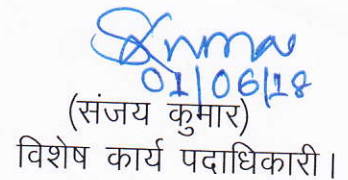 01/06/18
(संजय कुमार)
विशेष कार्य पदाधिकारी।